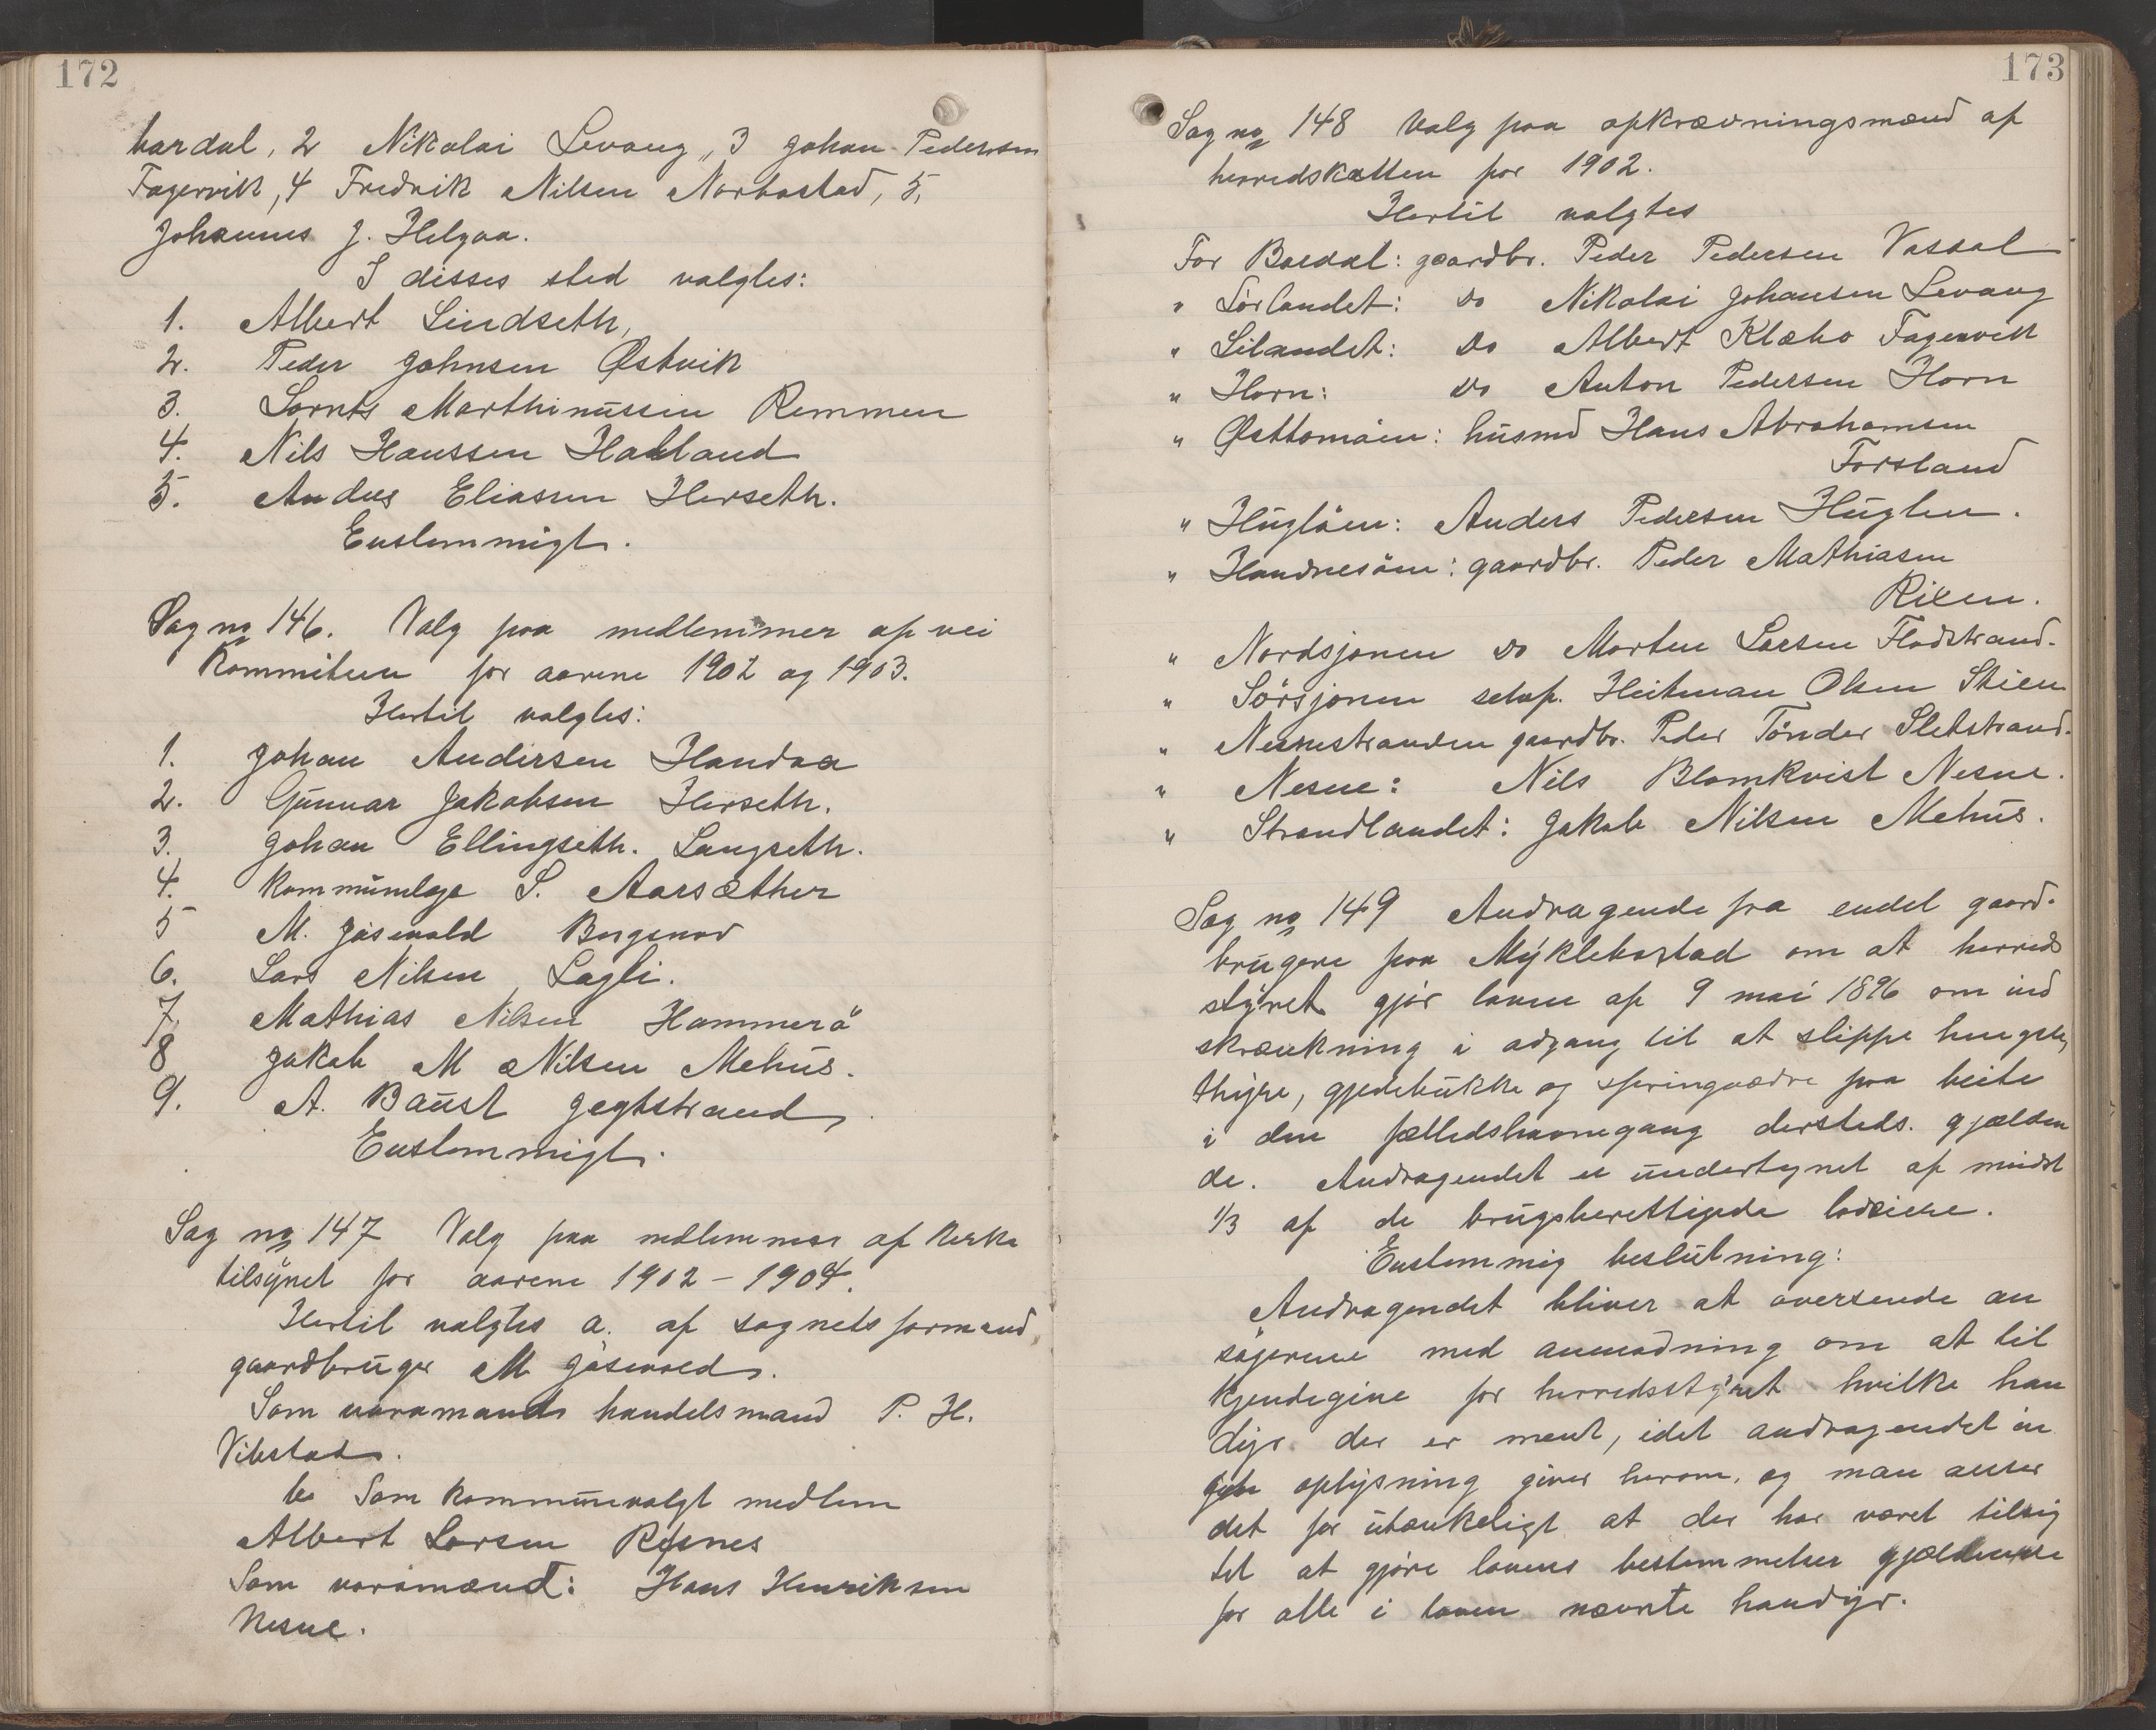 172
bardal, 2 Nikolai Levang, 3 Johan Pedersen
Fagervik, 4 Fredrik Nilsen Norbostad, 5,
Johannes J. Helgaa.
I disses sted valgtes:
1. Albert Lindseth,
2. Peder Johnsen Østvik
3. Lornts Marthinussen Remmen
4. Nils Hanssen Haaland
5. Anders Eliassen Herseth.
Enstemmigt.
Sag no 146. Valg paa medlemmer af vei
kommiteen for aarene 1902 og 1903.
Hertil valgtes:
1. Johan Andersen Handaa
2. Gunnar Jakobsen Herseth.
3. Johan Ellingseth. Langseth.
4. Kommunelæge S. Aarsæther
5 M. Jösevold
6. Lars Nilsen Lagli.
7, Mathias Nilsen Hammerö
8 Jakob M Nilsen Mehus.
9. A. Baust Jegtstrand.
Enstemmigt.
Sag no 147 Valg paa medlemmer af kirke
tilsynet for aarene 1902 - 1904.
Hertil valgtes a. af sognets formænd,
gaardbruger M Jösevold.
Som varamand handelsmand P. H.
Vibstad.
b. Som kommunevalgt medlem
Albert Larsen Risnes
Som varamænd: Hans Henriksen
Nesne.
173
Sag no 148 Valg paa opkrævningsmænd af
herredskatten for 1902.
Hertil valgtes
For Bardal: gaardbr. Peder Pedersen Vassal
" Sørlandet: do Nikolai Johansen Levang
" Lilandet: do Albert Klæbo Fagervik
" Horn: do Anton Pedersen Horn
" Østtomöen: husmd Hans Abrahamsen
Forsland
" Huglöen: Anders Pedersen Huglen.
" Handnesöen: gaardbr. Peder Mathiasen
Rixen.
" Nordsjonen do Morten Larsen Flodstrand.
" Sörsjonen selvf. Heitman Olsen Stien
" Nesnestranden gaardbr. Peder Tönder Sletstrand.
" Nesne: Nils Blomkvist Nesne.
" Strandlandet: Jakob Nilsen Mehus.
Sag no 149 Andragende fra endel gaard-
brugere paa Myklebostad om at herreds
styret gjör loven af 9 mai 1896 om ind
skrænkning i adgang til at slippe hingste,
thyre, gjedebukke og springvædre paa beite
i den fælledshavnegang dersteds. gjælden
de. Andragendet er undertegnet af mindst
1/3 af de brugsberettigede lodeiere.
Enstemmig beslutning:
Andragendet bliver at oversende an
søgerne med anmodning om at til
kjendegive for herredsstyret hvilke han
dyr der er ment, idet andragendet in
gen oplysning giver herom, og man anser
det for utænkeligt at der har været tilsig
tet at gjöre lovens bestemmelser gjældende
for alle i loven nævnte handyr.